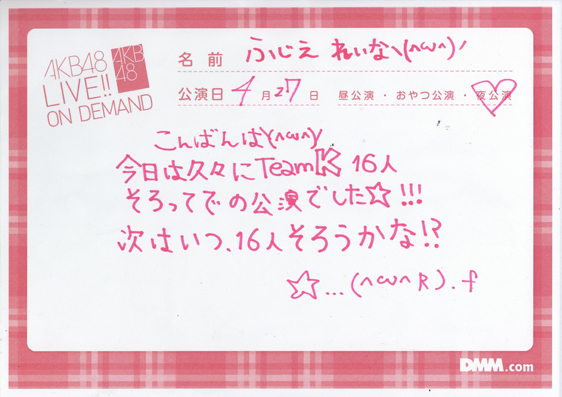 AKB48
LIVE!!
ON DEMAND
AKB
48
名前 ふじえ れいなヽ(^ω^)ノ
公演日 4月27日 昼公演・おやつ公演・夜公演
こんばんはY(^ω^)y
今日は久々にTeamK 16人
そろってでの公演でした☆!!!
次はいつ、16人そろうかな!?
☆...(^ω^R).f
DMM.com